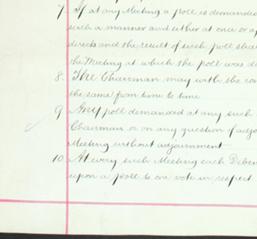 7 If at any Meeting a poll is demanded
such a manner and either at once or a
directs and the result of such poll sha
the Meeting at which the poll was d
8 The Chairman may with the con
the same from time to time
9 Any poll demanded at any such
Chairman or on any question of adjo
Meeting without adjournment
10 At every such Meeting each Deben
upon a poll to one vote in respect